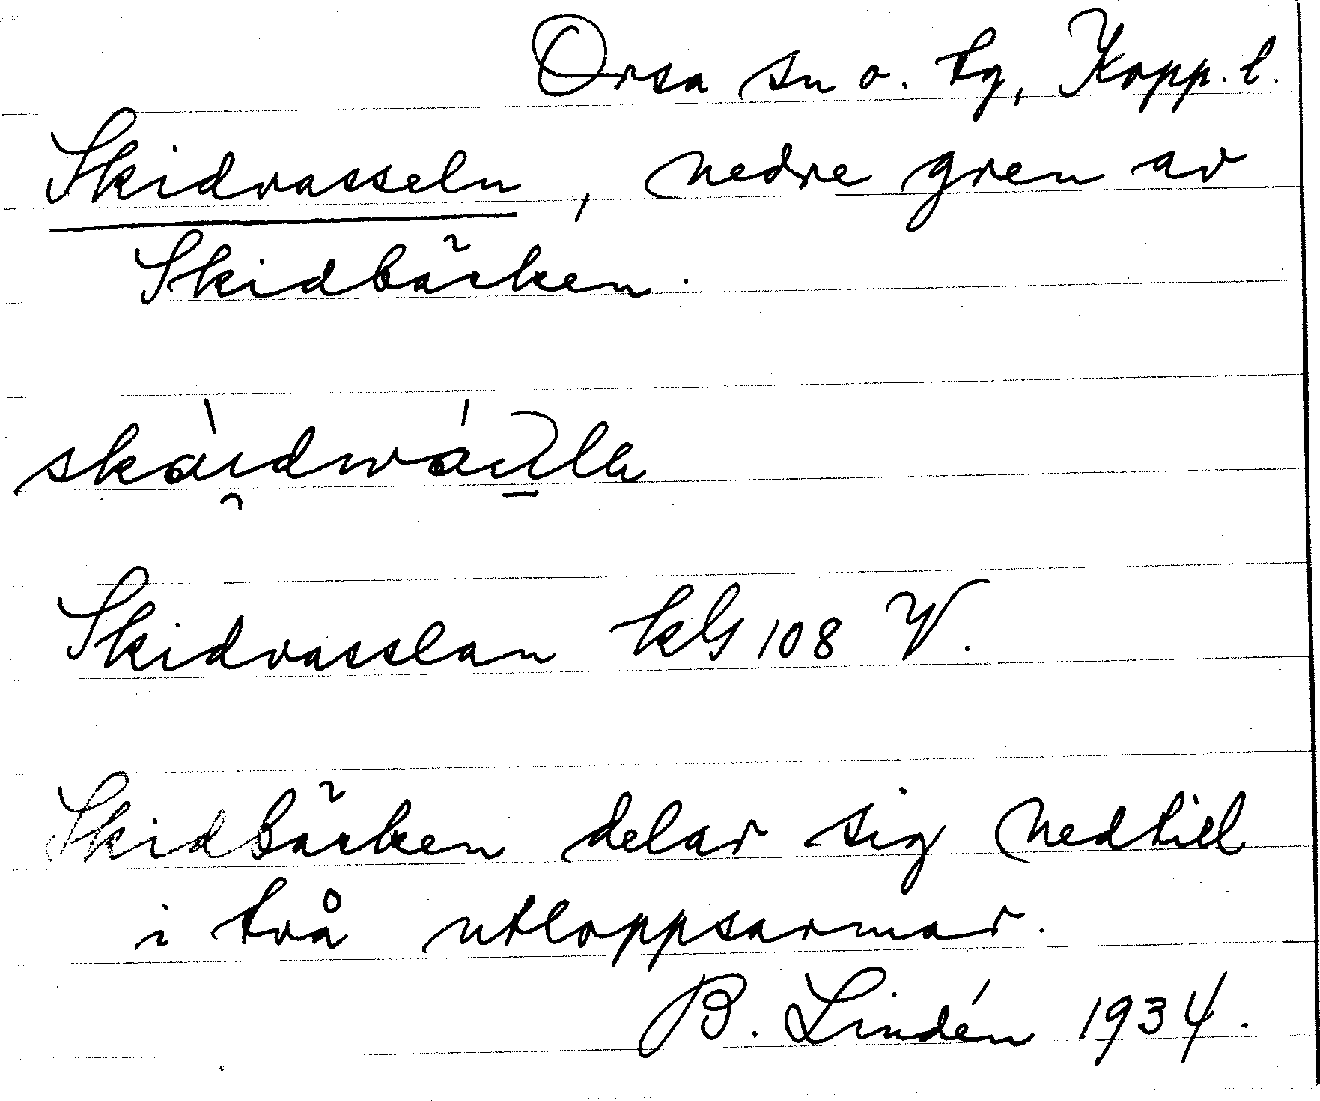 Orsa sn o. tg, Kopp. l.
Skidvasseln, nedre gren av
Skidbäcken.
Skidvasslan kG 108 V.
Skidbäcken delar sig nedtill
i två utloppsarmar.
B. Lindén 1934.